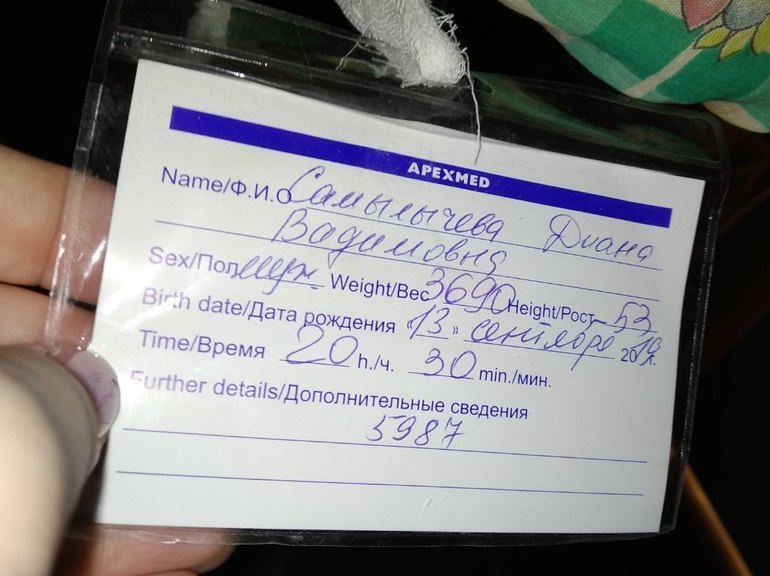 APEXMED
Name/Ф.И.О Самылычева Диана
Вадимовна
Sex/Пол муж Weight/Вес 3690 Height/Рост 53
Birth date/Дата рождения «13» сентября 2019г.
Time/Время 20 h./ч. 30 min./мин.
Further details/Дополнительные сведения
5987